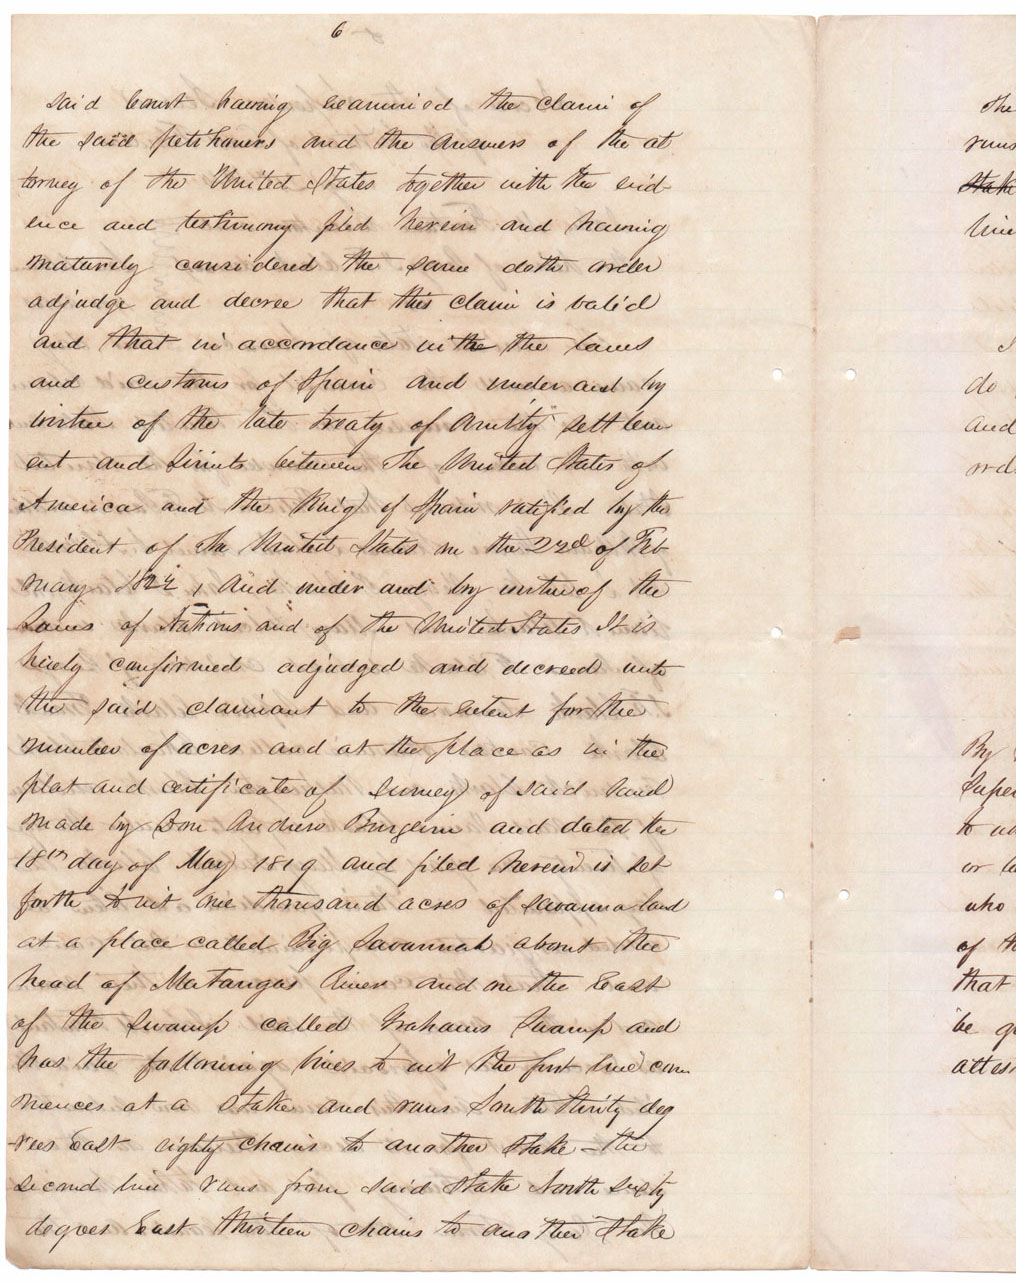 6
said Court having examined the claim of
the said petitioners and the answers of the at
torney of the United States together with the evid-
ence and testimony filed herein and having
maturely considered the same doth order
adjudge and decree that this claim is valid
and that in accordance with the the laws
and customs of Spain and under and by
virtue of the late treaty of Amity settlem
ent and Limits between the United States of
America and the King of Spain ratified by the
President of the United States on the 22d of Feb
ruary 1822, and under and by virtue of the
Laws of Nations and of the United States It is
hereby confirmed adjudged and decreed unto
the said claimant to the extent for the
number of acres and at the place as in the
plat and certificate of survey of said land
made by Don Andrew Burgevin and dated the
18th day of May 1819 and filed herein is set
forth to wit one thousand acres of savanna land
at a place called Big Savannah about the
head of Matanzas River and on the East
of the swamp called Grahams Swamp and
has the following lines to wit the first line com
mences at a stake and runs South thirty deg
-rees East eighty chains to another stake - the
second line runs from said stake North sixty
degees East thirteen chains to another stake
The
runs
stake
line
do
and
By
Supe
or
who
of th
that
be g
attes